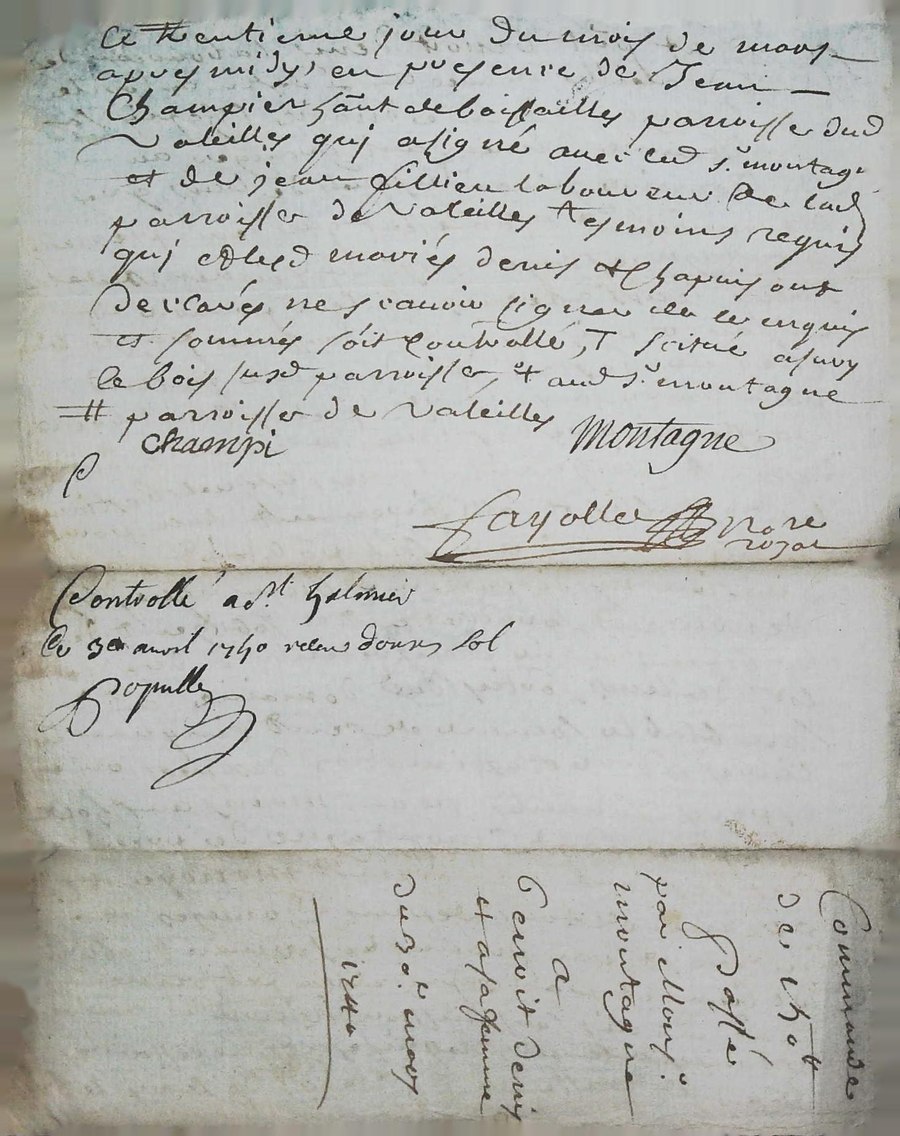 ce trentieme jour du mois de mars
apres midy, en presence de Jean
Champier hant de boissailles parroisse dud
Valeilles qui a signé avec led sr montagne
et de jean fillieu laboureur de lad
parroisse de Valeilles tesmoins requis
qui et lesd mariés denis et Chapuis ont
declarés ne scavoir signer de ce enquis
et sommés soit controllé, T scitué
le bois susd parroisse, + aud sr montagne
# parroisse de Valeilles
Champi
Montagne
fayolle Nore
royal
Controllé a St Galmier
Ce 3e avril 1740 receu douze sol
populle
Commande
de 150 tt
Passé
par Monsr
montagne
a
Benoit denis
et a sa femme
du 30e mars
1740